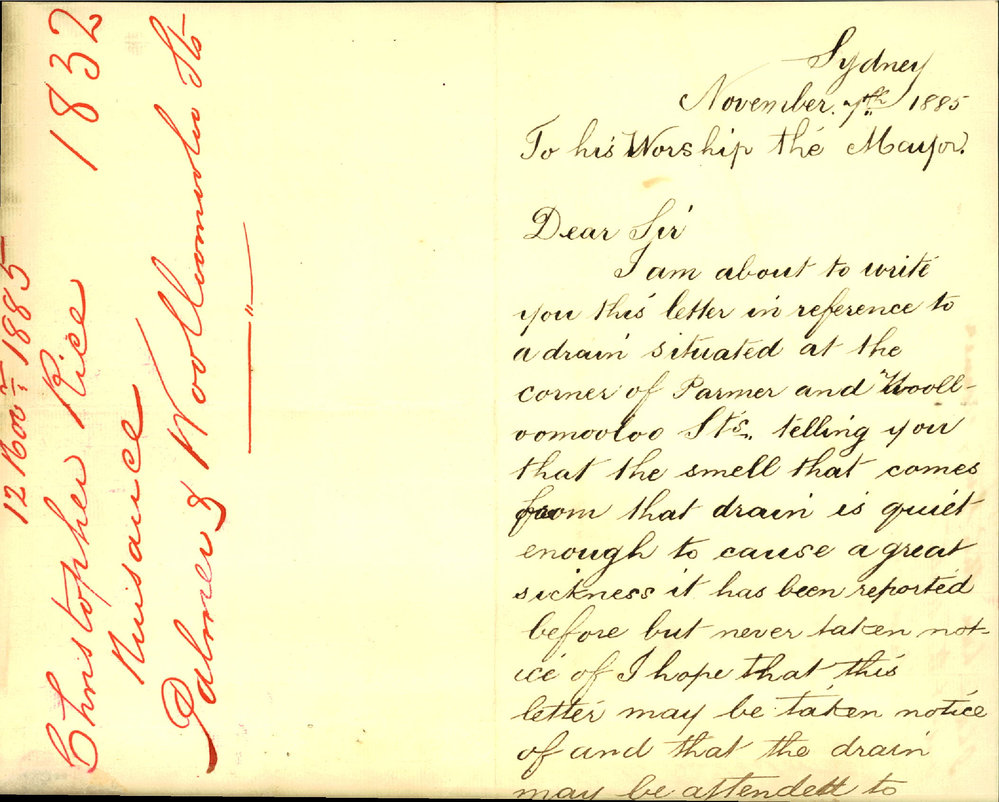 12 Novr. 1885
Christopher Rice 1832
Nuisance
Palmer & Woolloomooloo Sts
Sydney
November. 7th 1885
To his Worship the Mayor.
Dear Sir
I am about to write
you this letter in reference to
a drain situated at the
corner of Parmer and Wooll-
oomooloo Sts. telling you
that the smell that comes
from that drain is quiet
enough to cause a great
sickness it has been reported
before but never taken not-
ice of I hope that this
letter may be taken notice
of and that the drain
may be attendett to